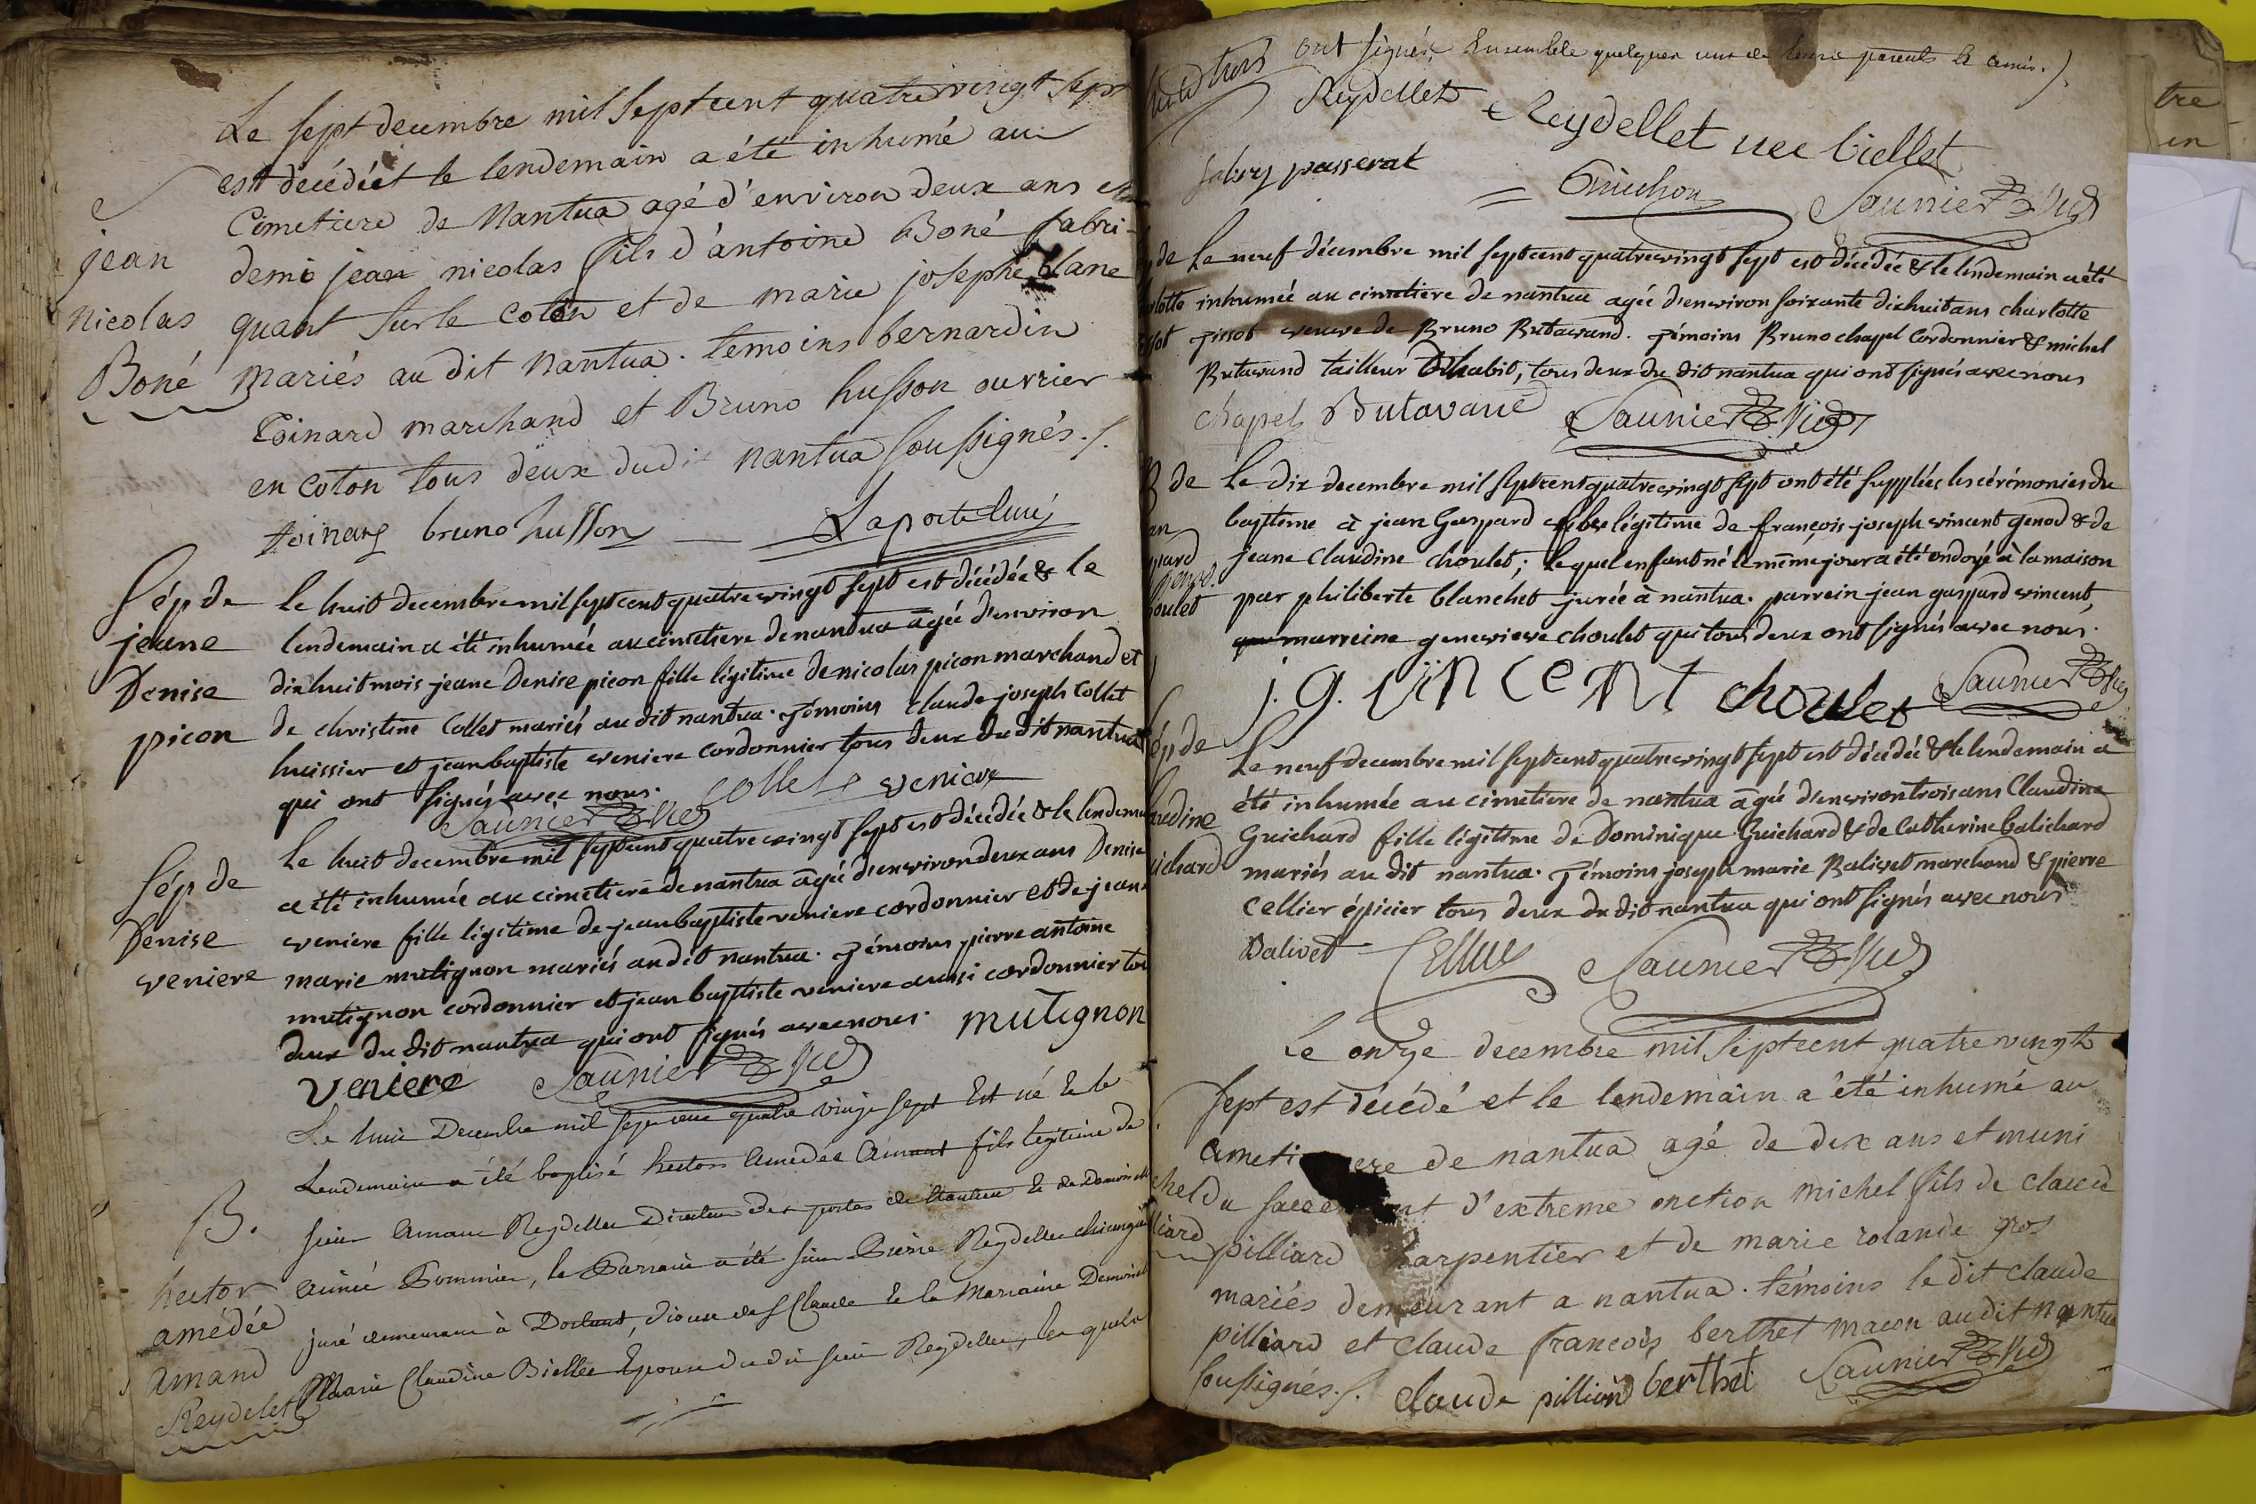 Le sept decembre mil septcent quatrevingt sept
est décédé et le lendemain a été inhumé au
Cimetiere de Nantua agé d'environ deux ans et
jean
demi jean nicolas fils d'antoine Boné fabri-
nicolas
quant sur le coton et de marie josephe
Boné
mariés au dit nantua. temoins bernardin
Toinard marchand et Bruno husson ouvrier
en coton tous deux dudit nantua soussignés./.
toinard bruno husson Laporte Curé
Sép de
jeane
Denise
picon
le huit decembre mil septcent quatrevingt sept est décédée & le
lendemain a été inhumée au cimetiere de nantua agée d'environ
dixhuit mois jeane Denise picon fille légitime de nicolas picon marchand et
de christine Collet mariés au dit nantua. Témoins claude joseph Collet
huissier et jean baptiste veniere cordonnier tous deux du dit nantua
qui ont signés avec nous. Collet veniere
Saunier Vic
Sép de
Denise
veniere
Le huit decembre mil septcent quatrevingt sept est décédée & le lendemain
a été inhumée au cimetiere de nantua agée d'environ deux ans Denise
veniere fille légitime de jean baptiste veniere cordonnier et de jeane
marie mutignon mariés au dit nantua. Témoins pierre antoine
mutignon cordonnier et jean baptiste veniere aussi cordonnier tous
deux du dit nantua qui ont signés avec nous. mutignon
veniere Saunier Vic
B.
hector
amédée
amand
Reydelet
Le huit Decembre mil sept cent quatre vingt sept Est né & le
Lendemain a été baptisé hector amedée amant fils legitime de
sieur amant Reydellet Directeur des postes de Nantua & de Demoiselle
aimée Pommier, le Parrain a été sieur Pierre Reydellet chirurgien
juré demeurant à Dortant, Diocese de St Claude & la Marraine Demoiselle
Marie Claudine Biellet Epouse du dit sieur Reydellet, les quels
ont signés, Ensemble quelques uns de leurs parents & amis./.
Reydellet Reydellet nee biellet
passerat Guichon Saunier Vic
de
Le neuf décembre mil septcent quatrevingt sept est décédée & le lendemain a été
inhumée au cimetiere de nantua agée d'environ soixante dixhuit ans charlotte
pissot veuve de Bruno Butavand. Témoins Bruno chapel Cordonnier & michel
Butavand tailleur d'habit, tous deux du dit nantua qui ont signés avec nous
chapel Butavand Saunier Vic
B de
Le dix decembre mil septcent quatrevingt sept ont été supplées les cérémonies du
baptême à jean Gaspard fils légitime de françois joseph vincent genod & de
jeane Claudine choulet; lequel enfant né le même jour a été ondoyé à la maison
par philiberte blanchet jurée à nantua. parrein jean gaspard vincent,
marreine genevieve choulet qui tous deux ont signés avec nous.
j. g. vincent choulet Saunier Vic
Sép de
Claudine
Guichard
Le neuf decembre mil septcent quatrevingt sept est décédée & le lendemain a
été inhumée au cimetiere de nantua agée d'environ trois ans Claudine
Guichard fille légitime de Dominique Guichard & de Catherine balichard
mariés au dit nantua. Témoins joseph marie Balivet marchand & pierre
Cellier épicier tous deux du dit nantua qui ont signés avec nous
Balivet Cellier Saunier Vic
Le onze decembre mil septcent quatre vingt
sept est décédé et le lendemain a été inhumé au
cimetiere de nantua agé de dix ans et muni
du sacrement d'extreme onction michel fils de claude
pilliard charpentier et de marie rolande gros
mariés demeurant a nantua. témoins le dit claude
pilliard et claude françois berthet macon au dit nantua
soussignés./. claude pilliard berthet Saunier Vic
tre
en